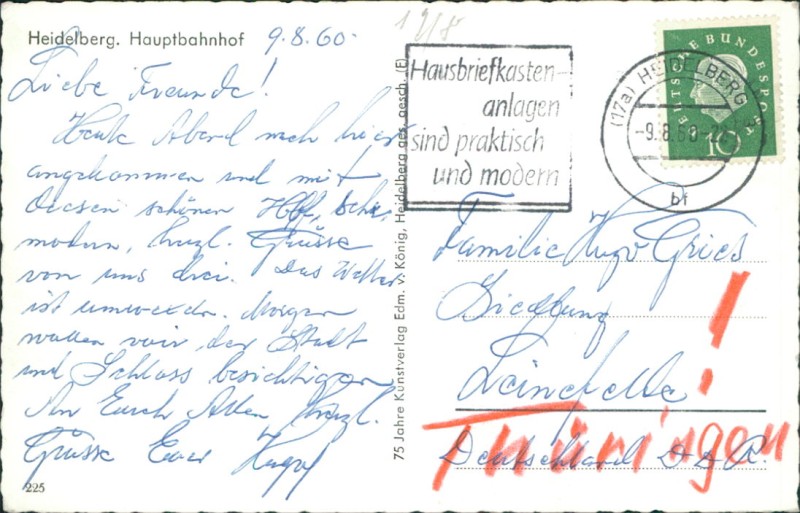 Heidelberg. Hauptbahnhof 9.8.60.
Liebe Freunde!
Heute Abend noch hier
angekommen und mit
diesen schönen Hbf, sehr
modern, herzl. Grüsse
von uns drei. Das Wetter
ist
Morgen
wollen wir die Stadt
und Schloss besichtigen
An Euch Allen herzl.
Grüsse Euer
225
75 Jahre Kunstverlag Edm. v. König, Heidelberg ges. gesch. (E)
Hausbriefkasten-
anlagen
sind praktisch
und modern
(17a) HEIDELBERG
-9.8.60-
bf
DEUTSCHE BUNDESPOST
10
Familie Hugo Gries
Siedlung
Leinefelde !
Thüringen
Deutschland D.D.R.